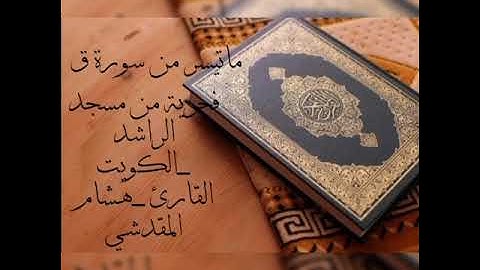 ماتيسر من سورة ق
فجرية من مسجد
الراشد
_الكويت
القارئ_هشام
المقدشي